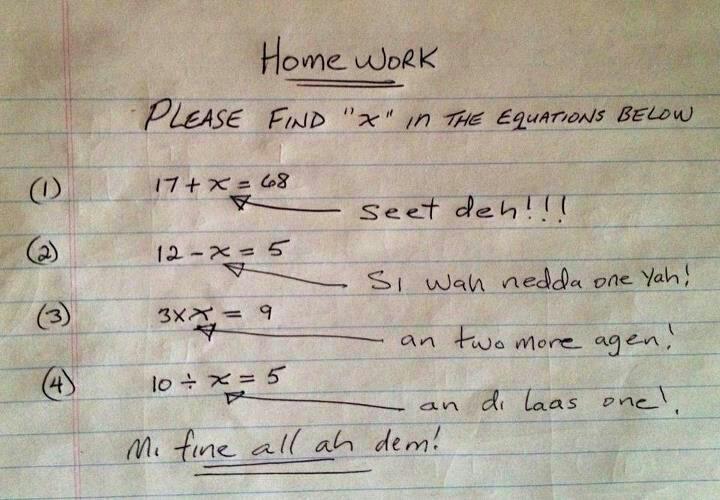 Home Work
PLEASE FIND "x" in THE EQUATIONS BELOW
(1) 17 + x = 68
seet deh!!!
(2) 12 - x = 5
Si wah nedda one yah!
(3) 3xx = 9
an two more agen!
(4) 10 ÷ x = 5
an di laas one!
Mi fine all ah dem!